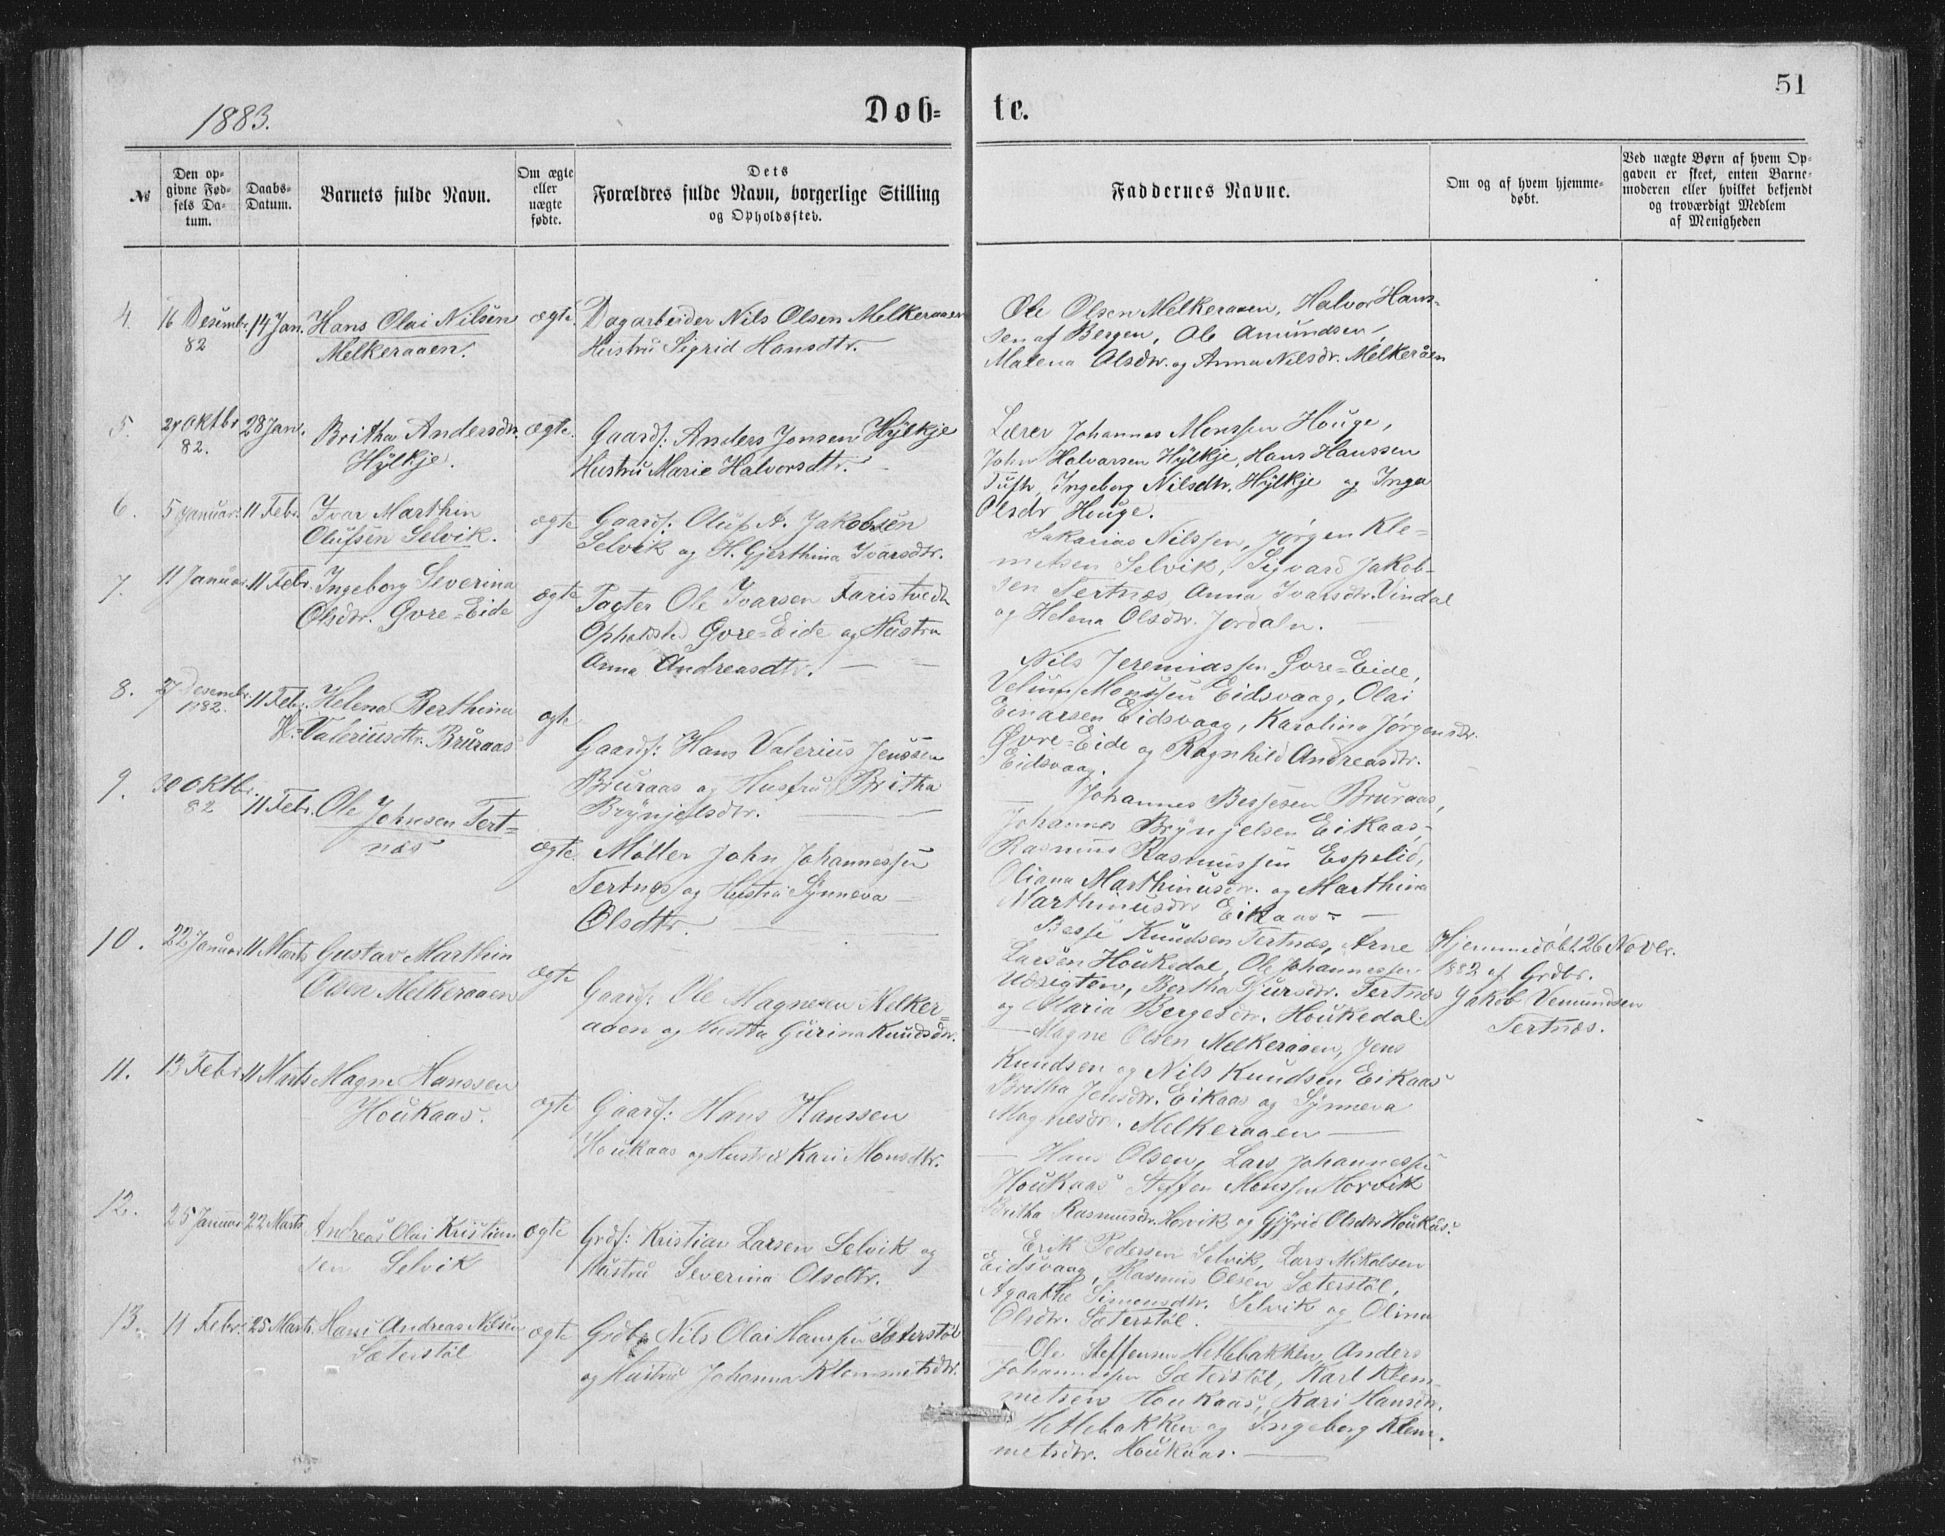 51
1883.
Døb-
te.
№
Den op-
givne Fød-
sels Da-
tum.
Daabs-
Datum.
Barnets fulde Navn.
Om ægte
eller
uægte
fødte.
Dets
Forældres fulde Navn, borgerlige Stilling
og Opholdssted.
Faddernes Navne.
Om og af hvem hjemme-
døbt.
Ved uægte Børn af hvem Op-
gaven er skeet, enten Barne-
moderen eller hvilket bekjendt
og troværdigt Medlem
af Menigheden
4.
16 Desembr.
82
14 Jan.
Hans Olai Nilsen
Melkeraaen.
ægte.
Dagarbeider Nils Olsen Melkeraaen
Hustru Sigrid Hansdtr.
Ole Olsen Melkeraaen, Halvor Hans-
sen af Bergen, Ole Amundsen,
Malena Olsdtr. og Anna Nilsdr. Melkeråen
5.
27 Oktbr
82.
28 Jan.
Britha Andersdtr.
Hylkje.
ægte.
Gaardf: Anders Jonsen Hylkje
Hustru Marie Halvorsdtr.
Lærer Johannes Monssen Houge,
John Halvarsen Hylkje, Hans Hanssen
Tuft, Ingeborg Nilsdtr. Hylkje og Inga
Olsdr Houge.
6.
5 Januar.
11 Febr.
Ivar Marthin
Olufsen Selvik.
ægte
Gaardf: Oluf A. Jakobsen
Selvik og H. Gjerthina Ivarsdtr.
Sakarias Nilssen, Jørgen Kle-
metsen Selvik, Sigvard Jakob-
sen Tertnæs, Anna Ivarsdtr. Vindal
og Helena Olsdtr. Jordaln.
7.
11 Januar
11 Febr.
Ingeborg Severina
Olsdtr. Øvre-Eide
ægte
Pagter Ole Ivarsen Faristvedt
Opholdsted Øvre-Eide og Hustru
Anna Andreasdtr.
Nils Jeremiassen Øvre-Eide,
Velum Monssen Eidsvaag, Olai
Einarsen Eidsvaag, Karolina Jørgensdr.
Øvre-Eide og Ragnhild Andreasdtr.
Eidsvaag.
8.
27 Desembr.
1882.
11 Febr.
Helena Berthina
H. Valeriusdtr. Bruraas
ægte
Gaardf: Hans Valerius Jenssen
Bruraas og Hustru Britha
Brynjelsdtr.
Johannes Bessesen Bruraas,
Johannes Brynjelsen Eikaas
Rasmus Rasmussen Espelid,
Oliana Marthinusdr. og Marthina
Marthinusdr Eikaas
9.
30 Oktbr.
82
11 Febr.
Ole Johnsen Tert-
næs
ægte.
Møller John Johannessen
Tertnæs og Hustru Synneva
Olsdtr.
Besse Knudsen Tertnæs, Arne
Larsen Houkedal, Ole Johannessen
Udsigten, Bertha Sjursdr. Tertnæs
og Maria Bergesdr. Houkedal.
Hjemmedøbt 26 Novbr.
1882 af Grdbr.
Jakob Vemundsen
Tertnæs.
10.
22 Januar
11 Marts
Gustav Marthin
Olsen Melkeraaen
ægte
Gaardf: Ole Magnesen Melker-
aaen og Hustru Gurina Knudsdr.
Magne Olsen Melkeraaen, Jens
Knudsen og Nils Knudsen Eikaas
Britha Jensdr. Eikaas og Synneva
Magnesdr. Melkeraaen
11.
13 Febr.
11 Marts
Magne Hanssen
Houkaas.
ægte
Gaardf: Hans Hanssen
Houkaas og Hustru Kari Monsdtr.
Hans Olsen, Lars Johannessen
Houkaas Steffen Monssen Horvik
Britha Rasmusdtr. Horvik og Gjyrid Olsdtr Houkås.
12.
25 Januar
22 Marts
Andreas Olai Kristian
sen Selvik
ægte
Grdf: Kristian Larsen Selvik og
Hustru Severina Olsdtr.
Erik Pedersen Selvik, Lars Mikalsen
Eidsvaag, Rasmus Olsen Sæterstøl,
Agaathe Simonsdtr. Selvik og Olina
Olsdtr. Sæterstøl.
13.
11 Febr.
25 Marts
Hans Andreas Nilsen
Sæterstøl
ægte
Grdbr Nils Olai Hanssen Sæterstøl
og Hustru Johanna Klemmetsdtr.
Ole Steffensen Hetlebakken, Anders
Johannessen Sæterstøl, Karl Klem-
metsen Houkaas, Kari Hansdr.
Hetlebakken og Ingeborg Klem-
metsdtr. Houkaas.